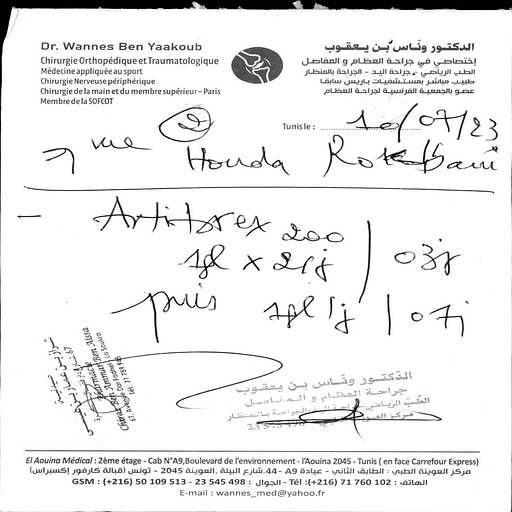 Dr. Wannes Ben Yaakoub
Chirurgie Orthopédique et Traumatologique
Médecine appliquée au sport
Chirurgie Nerveuse périphérique
Chirurgie de la main et du membre supérieur – Paris
Membre de la SOFCOT
الدكتور ونّاس بن يعقوب
إختصاصي في جراحة العظام و المفاصل
الطب الرياضي - جراحة اليد - الجراحة بالمنظار
طبيب مباشر بمستشفيات باريس سابقا
عضو بالجمعية الفرنسية لجراحة العظام
2
Tunis le : 10/07/23
Mme Houda
- Artibrex 200
1gl x 2/j | 03j
puis 1gl/j | 07j
الدكتور ونّاس بن يعقوب
جراحة العظام و المفاصل
El Aouina Médical : 2ème étage - Cab N°A9,Boulevard de l'environnement - l'Aouina 2045 - Tunis ( en face Carrefour Express)
مركز العوينة الطبي : الطابق الثاني - عيادة A9 -44، شارع البيئة ,العوينة 2045 - تونس (قبالة كارفور إكسبراس)
GSM : (+216) 50 109 513 - 23 545 498 : الجوال - Tél :(+216) 71 760 102 : الهاتف
E-mail : wannes_med@yahoo.fr